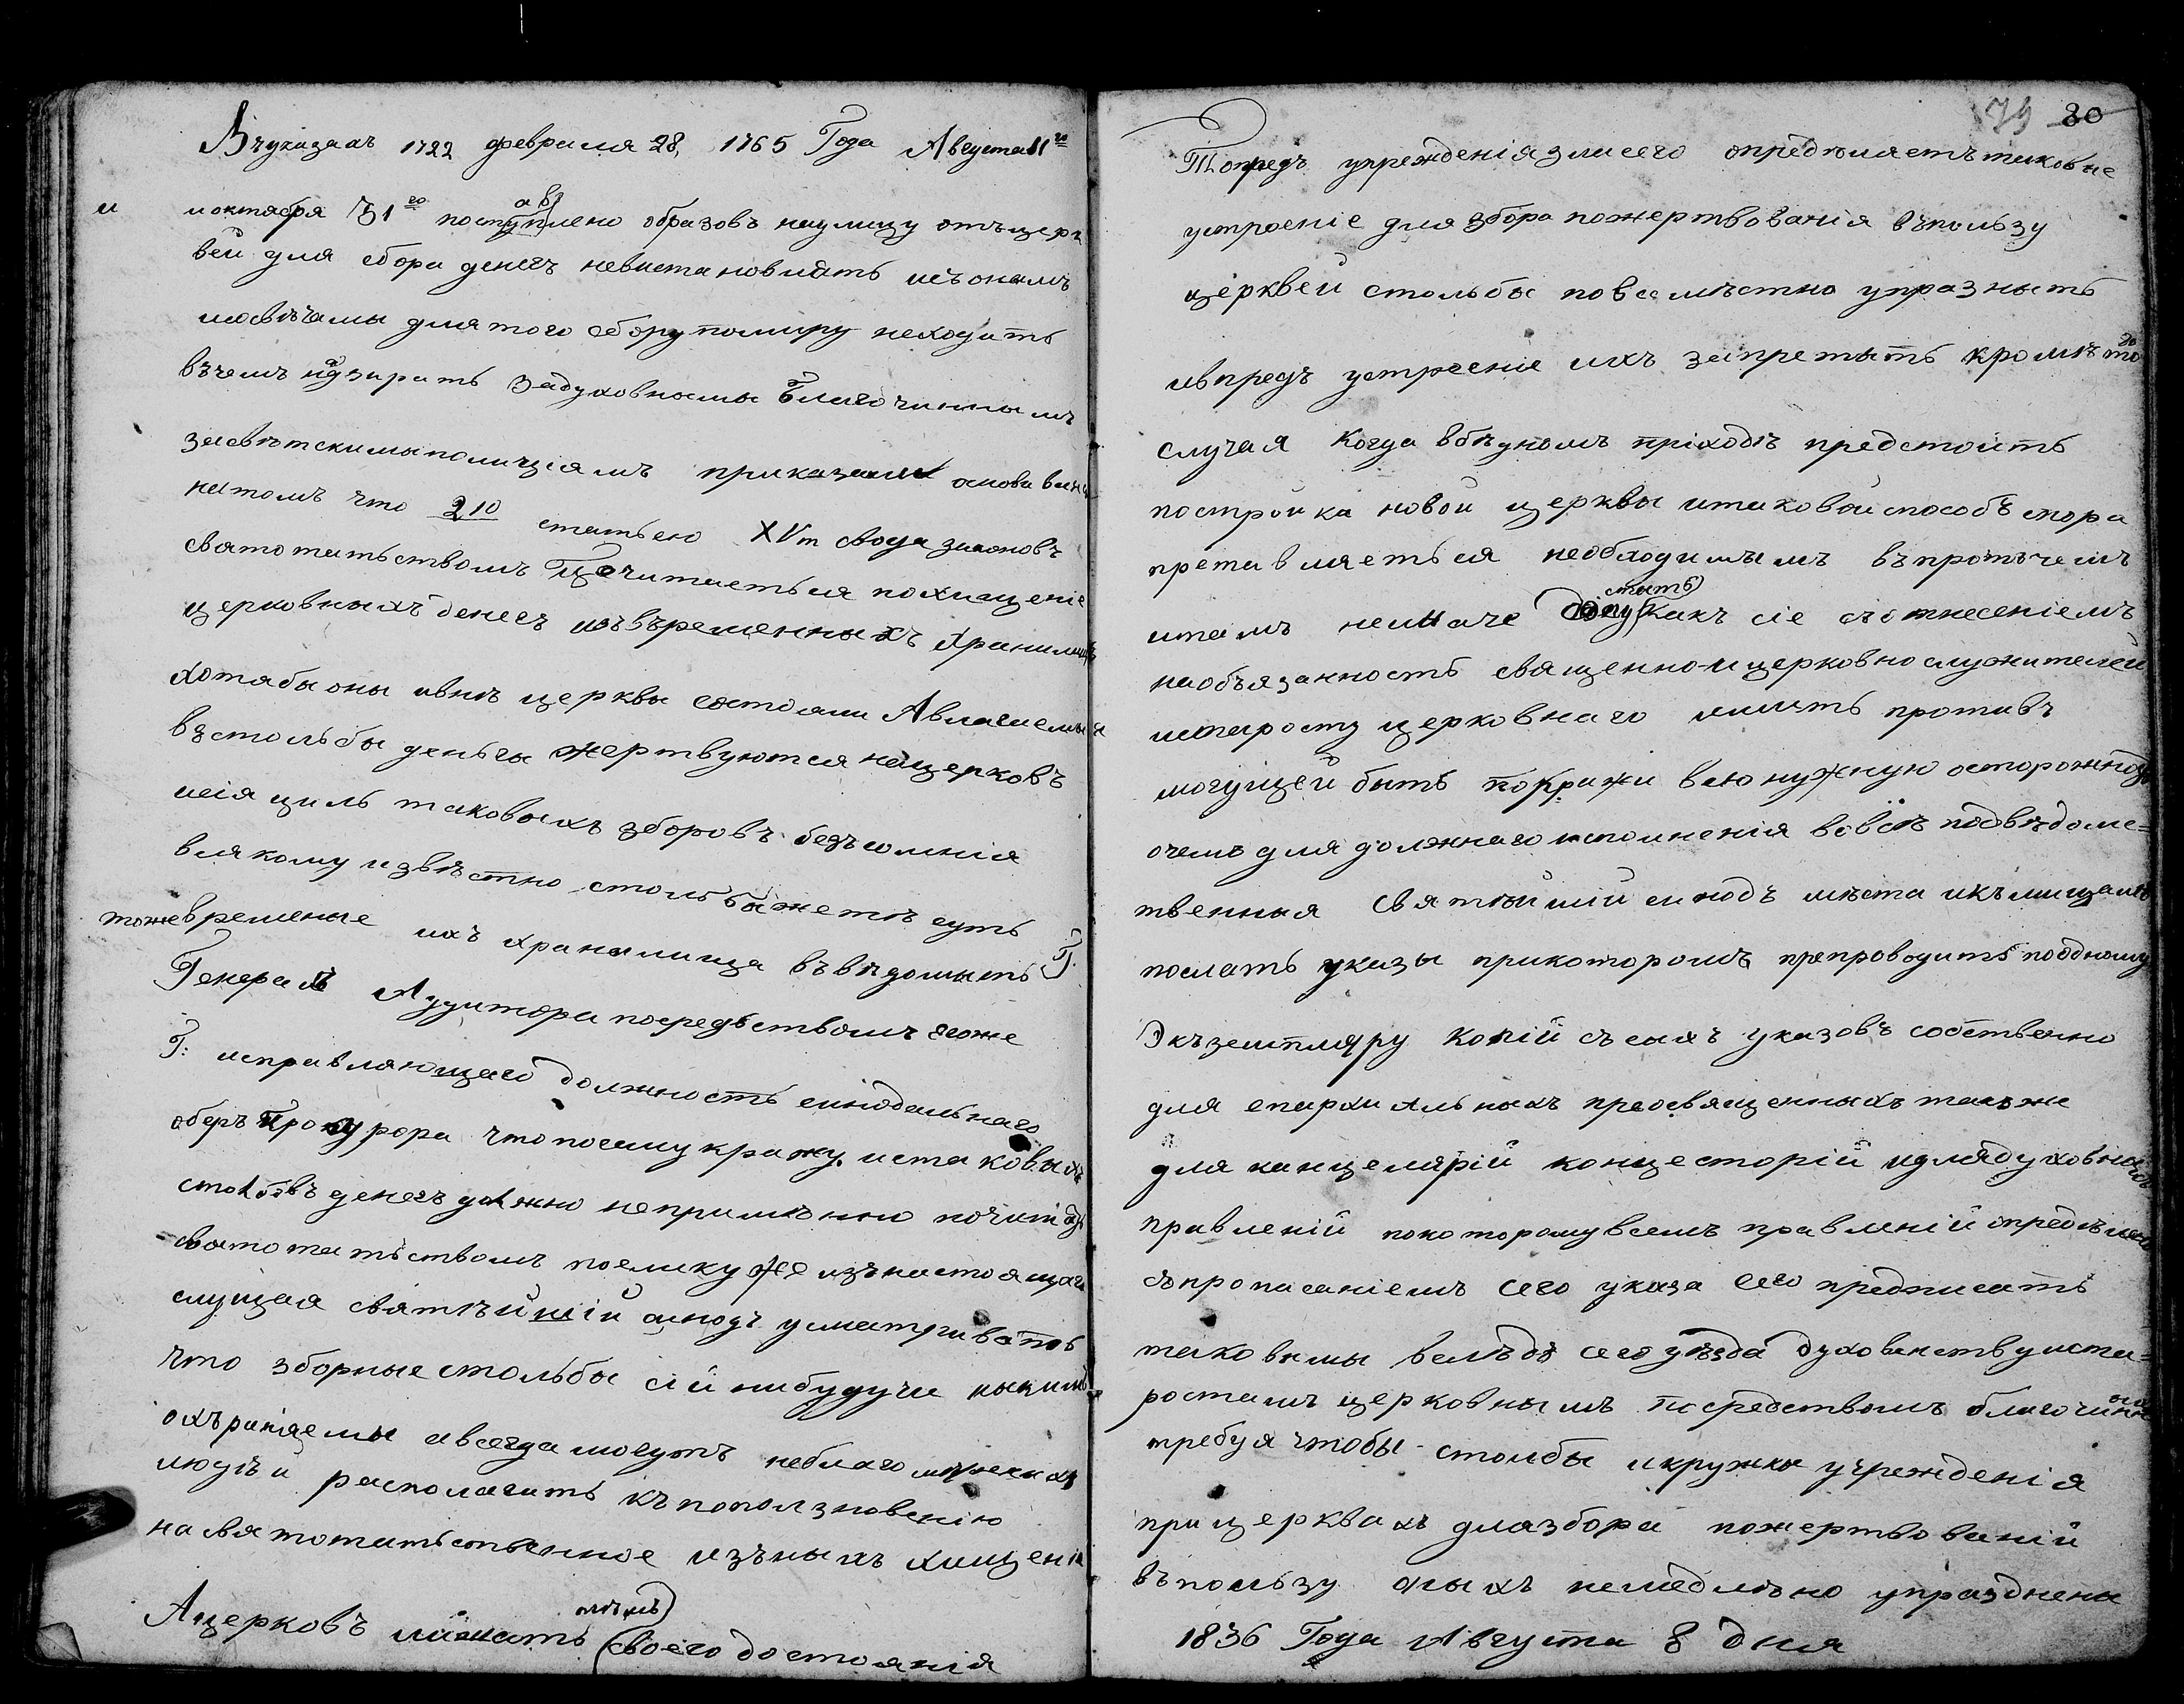 Въуказахъ 1722 февраля 28, 1765 Года Августа 11го
иоктября 31го поступлено образовъ наулицу отъцерк
вей для сбора денегъ невыстановлять исъонымъ
мосвѣчамы длятого сборутомиру неходить
въчемъ надзирать Задуховнымы Благочиннымъ
засвѣтскимыполиціямъ приказали основывая
натомъ что 210 статьею XVт свода законовъ
святотатьствомъ Почитаеться похищеніе
церковныхъденегъ изъвъременныхъ хранилищъ
хотябыоны ивнѣ церквы состояли Авлагаемыя
въстольбы деньгы жертвуются нацерковъ
исія циль таковыхъ зборовъ безъсомнія
всякому извѣстно стольбыжетѣ суть
тоже временые ихъ хранилища въвѣдомить Г.
Генералъ Аудитора посредьствомъ егоже
Г: исправляющаго должность синодальнаго
оберъ Прокурора чтопосему кражу истаковыхъ
столбовъ денегъ должно непримѣнно почитать
святотатьствомъ поелику же изънастоящаго
слущая святѣйшій синодъ усматриваетъ
что зборные стольбы сій нибудучи никимъ
охъраняемы авсегда могутъ неблагомѣреныхъ
людѣй располагать къпоползновенію
насвятотатьственное изъныхъ хищеніе
Ацерковъ лишать своего достоянія
79 80
То предъ упрежденія зли сего опредѣляетъ таковые
устроеніе для збора пожертвованія въпользу
церквей стольбы повсемѣстно упразныть
ивпредъ устроеніе ихъ запретыть кромѣ того
случая когда вбѣдномъ приходѣ предстоить
постройка новой церквы итаковой способъ сбора
претавляеться необходимымъ въпротчемъ
итамъ неиначе допустить какъ сіе сотнесеніемъ
наобъязанность священно-ицерковнослужителей
истаросту церковнаго имить противъ
могущей быть покражи всю нужную осторожность
очемъ для должнаго исполненія вовсѣ подвѣдоме=
твенныя Святѣйшій синодъ мѣста икълицамъ
послать указы прикоторомъ препроводить поодному
Экъземпляру копій съсихъ указовъ собственно
для епархиальныхъ преосвященныхъ также
для канцелярій концесторій идлядуховныхъ
правленій покоторомувсемъ правленій опредѣлено
съпрописаніемъ сего указа его предписать
таковымы велѣдѣ сего уѣзда духовенствуиста=
ростамъ церковнымъ посредствомъ благочинныхъ
требуя чтобы столбы икружкы учрежденія
прицерквахъ длязбора пожертвованій
въпользу оныхъ немедлѣно упразднены
1836 Года Августа 8 дня